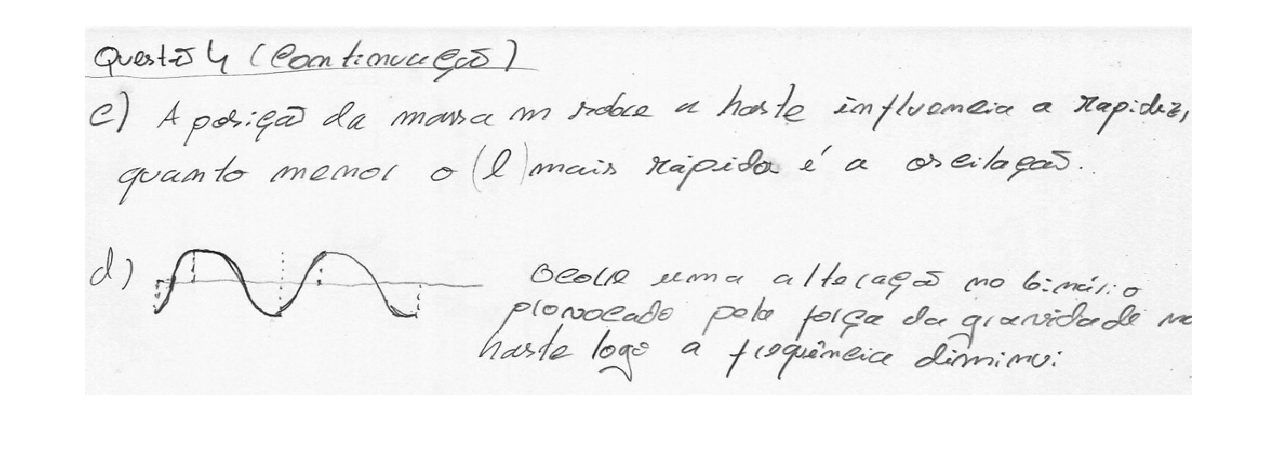 Questão 4 (Continuação)
c) A posição da massa m sobre a haste influencia a rapidez,
quanto menor o (l) mais rápida é a oscilação.
d) Ocorre uma alteração no binário
provocado pela força da gravidade na
haste logo a frequência diminui